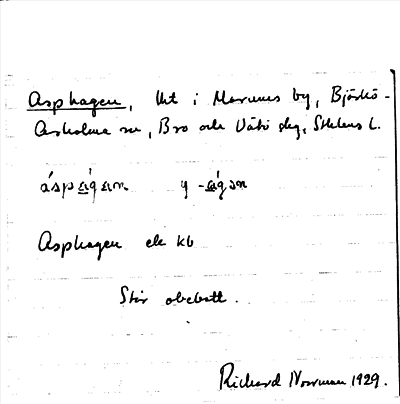 Asphagen, lht i Marums by, Björkö-
Arholma sn, Bro och Vätö skg, Sthlms l.
áspàgen y -àgən
Asphagen ek kb
Stör obebott.
Richard Norrman 1929.